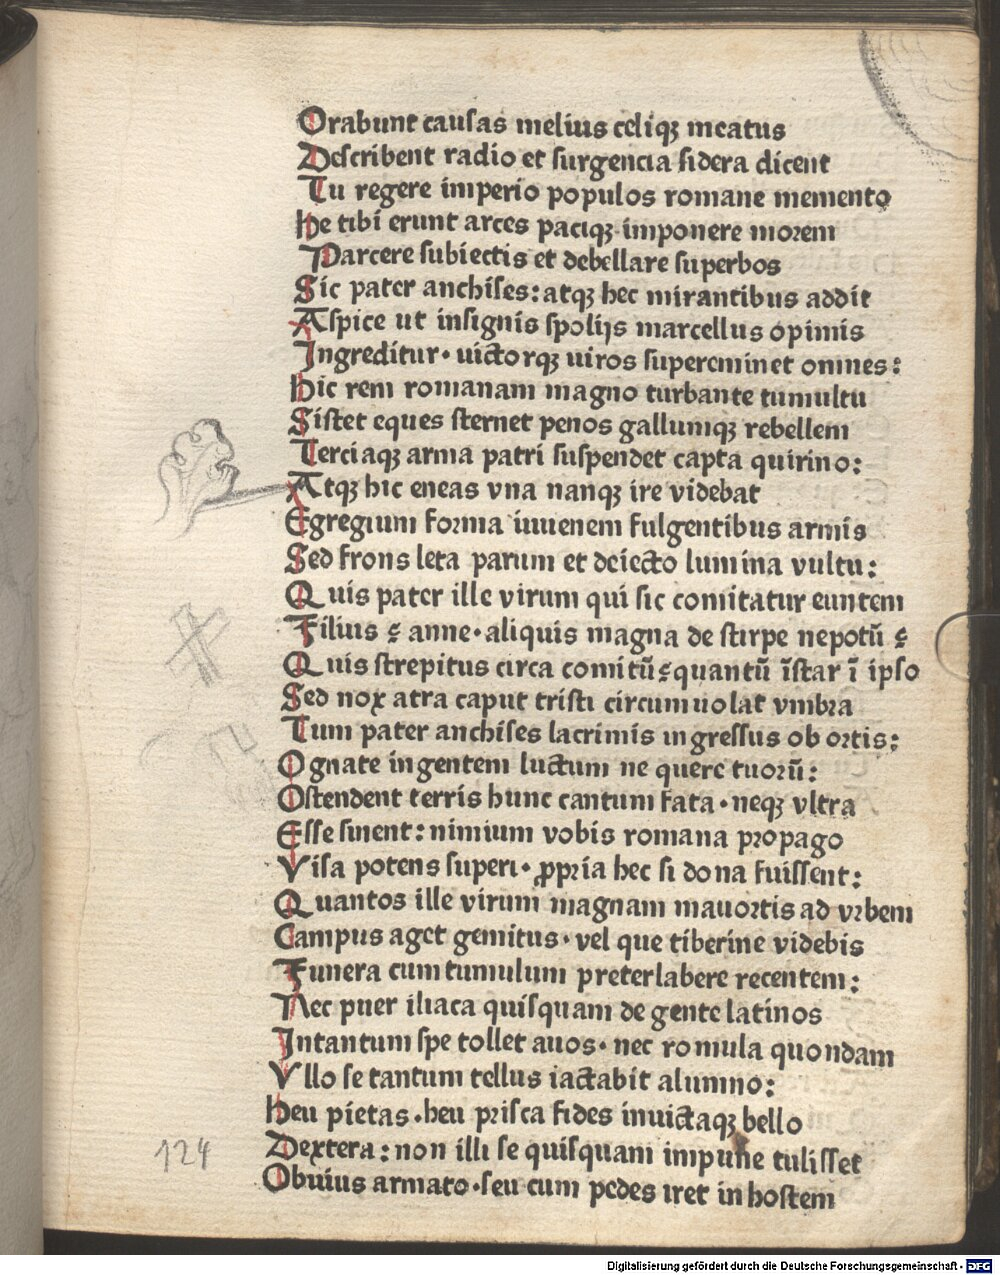 Orabunt causas melius celiqꝫ meatus
Describent radio et surgencia sidera dicent
Tu regere imperio populos romane memento
He tibi erunt arces paciqꝫ imponere morem
Parcere subiectis et debellare superbos
Sic pater anchises: atqꝫ hec mirantibus addit
Aspice ut insignis spolijs marcellus opimis
Ingreditur· uictorqꝫ uiros supereminet omnes:
Hic rem romanam magno turbante tumultu
Sistet eques sternet penos gallumqꝫ rebellem
Terciaqꝫ arma patri suspendet capta quirino:
Atqꝫ hic eneas vna nanqꝫ ire videbat
Egregium forma iuuenem fulgentibus armis
Sed frons leta parum et deiecto lumina vultu:
Quis pater ille virum qui sic comitatur euntem
Filius ꝛ anne· aliquis magna de stirpe nepotū ꝛ
Quis strepitus circa comitū ꝛ quantū īstar ī ipso
Sed nox atra caput tristi circumuolat vmbra
Tum pater anchises lacrimis ingressus ob ortis:
O gnate ingentem luctum ne quere tuorū:
Ostendent terris hunc tantum fata· neqꝫ vltra
Esse sinent: nimium vobis romana propago
Visa potens superi· ꝓpria hec si dona fuissent:
Quantos ille virum magnam mauortis ad vrbem
Campus aget gemitus· vel que tiberine videbis
Funera cum tumulum preterlabere recentem:
Nec puer iliaca quisquam de gente latinos
Intantum spe tollet auos· nec romula quondam
Vllo se tantum tellus iactabit alumno:
Heu pietas· heu prisca fides inuictaqꝫ bello
Dextera: non illi se quisquam impune tulisset
Obuius armato· seu cum pedes iret in hostem
124
Digitalisierung gefördert durch die Deutsche Forschungsgemeinschaft - DFG